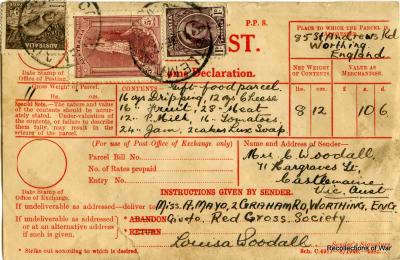 P.P.S.
ST.
Customs Declaration.
PLACE TO WHICH THE PARCEL IS
95 St Andrews Rd
Worthing.
England
NET WEIGHT OF CONTENTS
VALUE AS MERCHANDISE.
Date Stamp of Office of Posting.
Gross Weight of Parcel.
11
CONTENTS
Gift-food parcel.
Special Note.—The nature and value of the contents should be accurately stated. Undervaluation of the contents, or failure to describe them fully, may result in seizure of the parcel.
16 ozs Dripping, 12 ozs Cheese
16 " Fruit, 28" Meat
12" P. Milk, 16" Tomatoes.
24" Jam, 2 cakes Lux Soap.
8 12
10 6
(For use of Post Office of Exchange only)
Parcel Bill No.
No. of Rates prepaid
Entry No.
Date Stamp of Office of Exchange.
Name and Address of Sender.
Mrs C. Woodall
71 Hargraves St,
Castlemaine
Vic, Aust
INSTRUCTIONS GIVEN BY SENDER.
If undeliverable as addressed—deliver to Miss. A. MAYO, 2 GRAHAM RD, WORTHING, ENG
If undeliverable as addressed or at an alternative address if such is given.
* ABANDON Give to Red Cross Society
* RETURN
Louisa Woodall
* Strike out according to which is desired.
Recollections of War